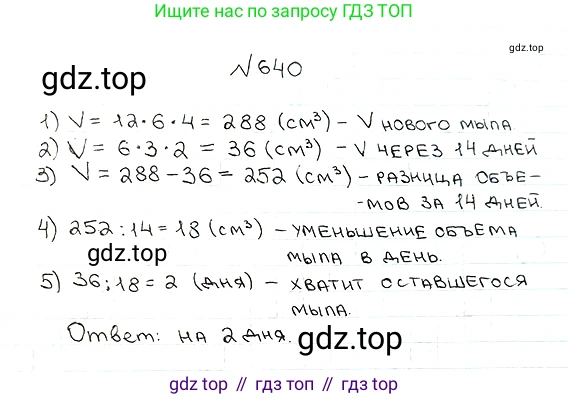 Ищите нас по запросу ГДЗ ТОП
gdz.top
№640
gdz.top
1) V = 12 · 6 · 4 = 288 (см³) – V нового мыла
2) V = 6 · 3 · 2 = 36 (см³) – V через 14 дней
3) V = 288 – 36 = 252 (см³) – разница объе-
-мов за 14 дней.
4) 252 : 14 = 18 (см³) – уменьшение объема
gdz.top
мыла в день.
5) 36 : 18 = 2 (дня) – хватит оставшегося
мыла.
Ответ: на 2 дня.
gdz.top
gdz top // гдз топ // gdz top // гдз топ